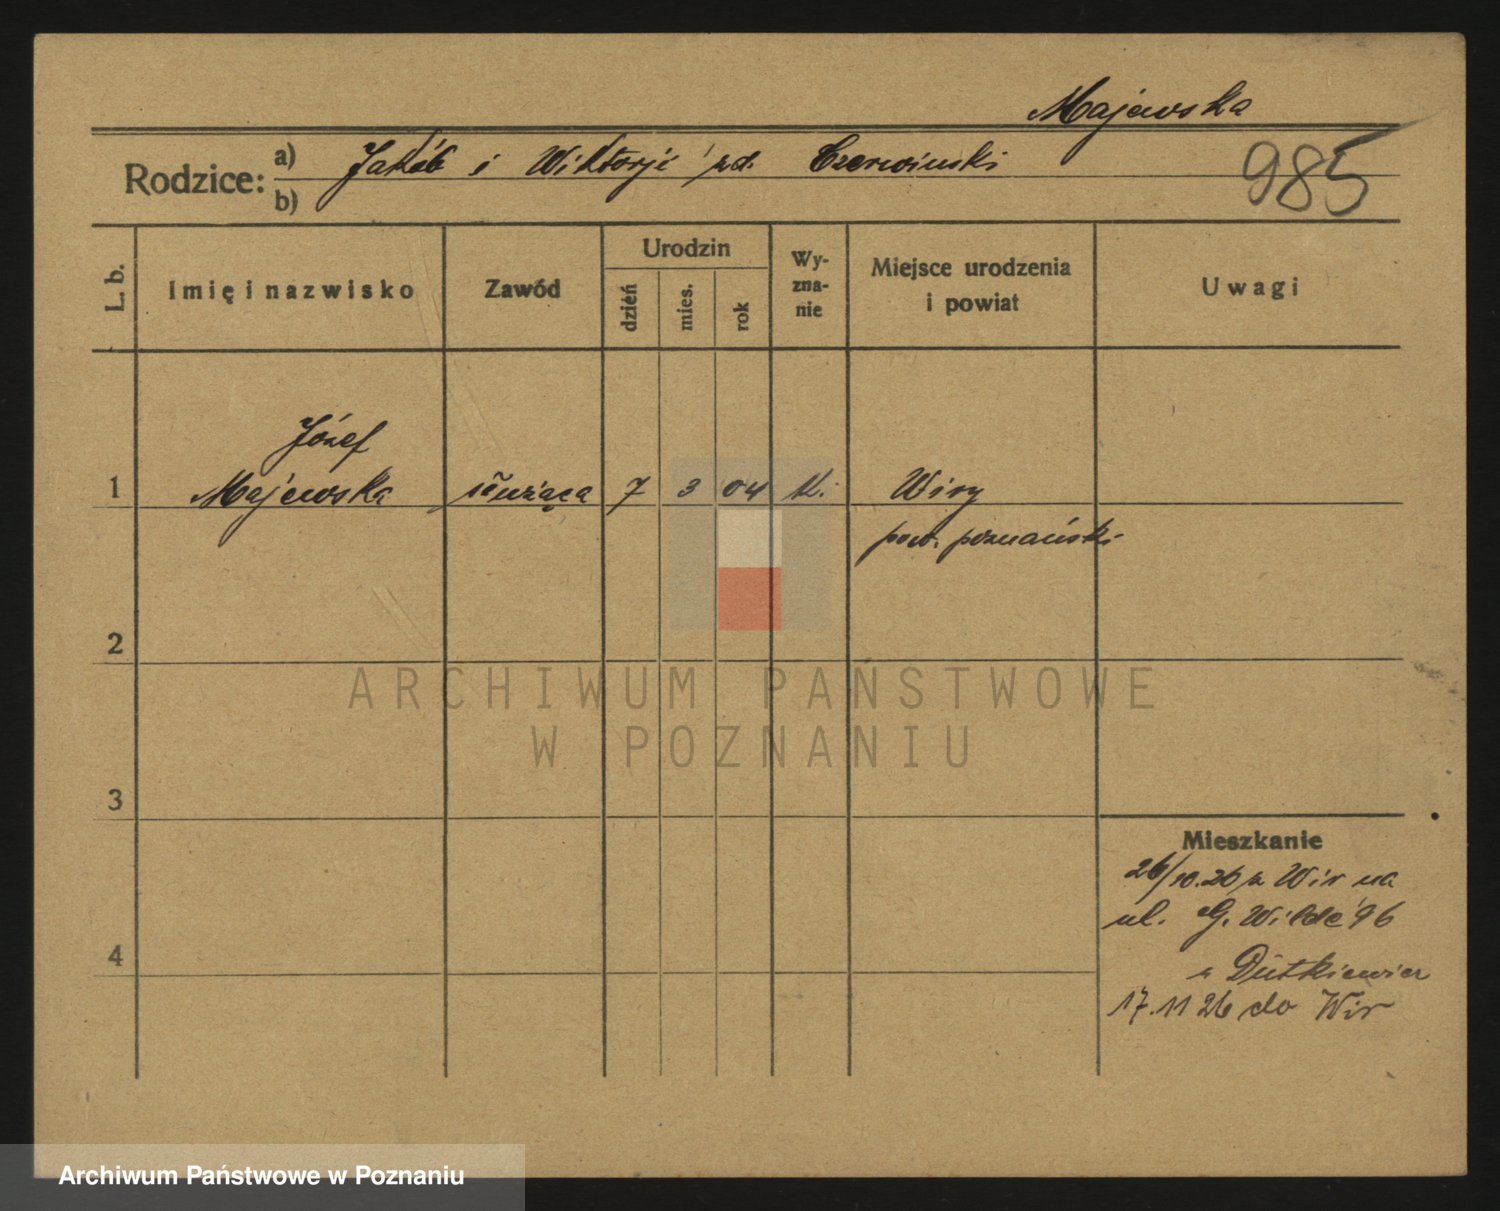 Majewska
985
Rodzice: a) Jakób i Wiktorji zd. Czerwinski
b)
L. b.
Imię i nazwisko
Zawód
Urodzin
dzień
mies.
rok
Wy-
zna-
nie
Miejsce urodzenia
i powiat
Uwagi
Józef
1 Majewska służąca 7 3 04 k. Wiry
pow. poznański
2
3
4
Mieszkanie
26/10.26 z Wir na
ul. G. Wilda 96
Dutkiewicz
17.11 26 do Wir
ARCHIWUM PAŃSTWOWE
W POZNANIU
Archiwum Państwowe w Poznaniu